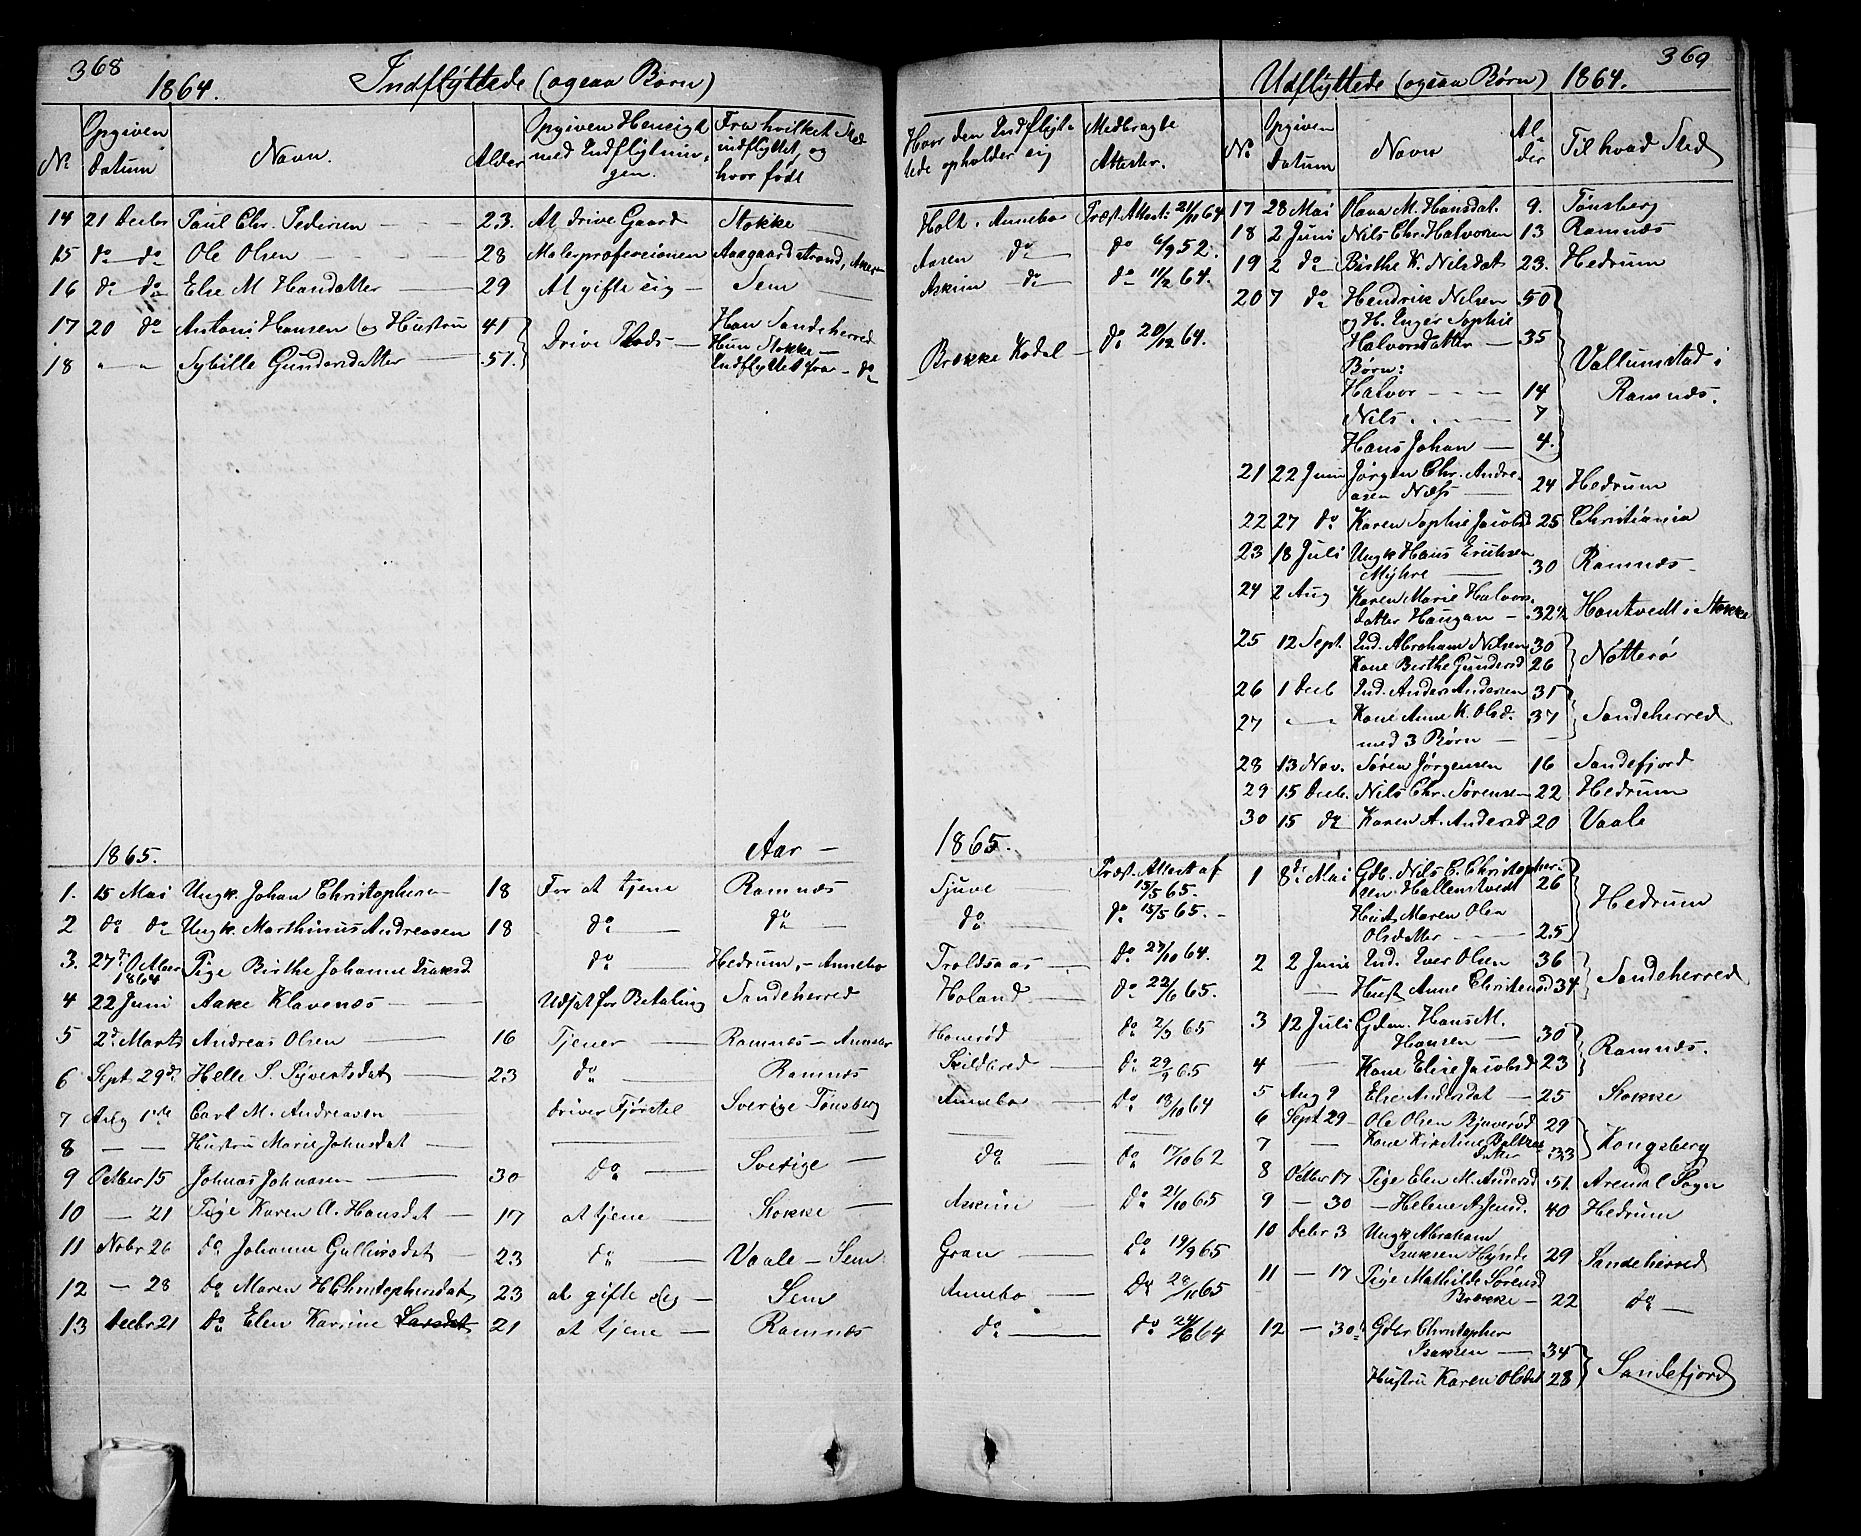 368
1864. Indflÿttede (ogsaa Børn)
No Opgiven Datum Navn. Alder Opgiven Hensigt med Indflÿtningen. Fra hvilket Sted indflÿttet, og hvor født Hvor den Indflÿttede opholder sig Medbragte Attester.
14 21 Decbr Paul Chr. Pedersen 23. At drive Gaard Stokke Holt. Annebo Præst.Attest: 21/11 64
15 do do Ole Olsen 28 Malerprofessionen Aasgaardstrand, Holt Aasen do do 6/9 52.
16 do do Else M Hansdatter 29 At gifte sig Sem Askim do do 11/2 64.
17 20 do Antoni Hansen (og Hustru 41 Drive Plads Han Sandeherred Brække Kodal do 20/12 64.
18 " " Sybille Gundersdatter 51. Hun Stokke Indflyttet fra do
1865. Aar 1865.
1. 15 Mai Ungk. Johan Christophersen 18 For at tjene Ramnæs Tjuve Præst. Attest af 15/5 65.
2 do do Ungk. Marthinus Andreasen 18 do do do do 15/5 65.
3. 27d Octber 1864 Pige Birthe Johanne Isaksd do Hedrum, Annebo Troldsaas do 27/10 64.
4 22 Juni Aake Klavenæs Udsat for Betaling Sandeherred Holand do 22/6 65.
5 2d Marts Andreas Olsen 16 Tjener Ramnæs Honerød do 2/3 65
6 Sept 29d Helle S. Syvertsdat 23 do Ramnæs Skilderød do 29/9 65
7 Aug 1ste Carl M. Andreasen driver Fjørstel Sverige Tønsberg Annebo do 13/10 64
8 Hustru Marie Johnsdat
9 Octber 15 Johnas Johnasen 30 do Sverige do do 17/10 62
10 21 Pige Karen O. Hansdat 17 at tjene Stokke Askim do 21/10 65
11 Nobr 26 do Johanne Gullixsdat 23 do Vaale Sem Gran do 19/9 65
12 28 do Maren H Christophersdat 23 at gifte sig Sem Annebo do 28/11 65
13 Decbr 21 do Elen Karine Larsdat 21 at tjene Ramnæs do do 24/6 64
369
Udflÿttede (ogsaa Børn) 1864.
No Opgiven Datum Navn Alder Til hvad Sted
17 28 Mai Olava M. Hansdat. 9. Tønsberg
18 2 Juni Nils Chr. Halvorsen 13 Ramnæs
19 2 do Birthe K. Nilsdat 23. Hedrum
20 7 do Hendrik Nilsen 50
og H. Inger Sophie
Halvorsdatter 35
Børn: Vallumstad i
Halvor 14 Ramnæs.
Nils 7
Hans Johan 4.
21 22 Juni Jørgen Chr. Andre-
asen Næss 24 Hedrum
22 27 do Karen Sophie Jacobsd 25 Christiania
23 18 Juli Ungk Hans Erichsen
Mÿhre 30 Ramnæs
24 2 Aug Karen Marie Halvors-
datter Haugan 32½ Hantvedt i Stokke
25 12 Sept. Ind. Abraham Nilsen 30
Kone Berthe Gundersd 26 Nøtterø
26 1 Decb Ind. Anders Andersen 31
27 " Kone Anne K. Olsd. 37 Sandeherred
med 3 Børn
28 13 Nov. Søren Jørgensen 16 Sandefjord
29 15 Decb. Nils Chr. Sørensen 22 Hedrum
30 15 do Karen A. Andersd 20 Vaale
1 8de Mai Gdb. Nils C. Christopher-
sen Hallenstvedt 26
Hust Maren Olea Hedrum
Olsdatter 25
2 2 Juni Ind. Iver Olsen 36
Hust Anne Christensd 34 Sandeherred
3 12 Juli Gdm. Hans M.
Hansen 30 Ramnæs.
4 Kone Elise Jacobsd 23
5 Aug 9 Else Andersdat 25 Stokke
6 Sept 29 Ole Olsen Bjuerød 29
7 Kone Kirstine Baltzersdatter 33 Kongsberg
8 Octber 17 Pige Elen M. Andersd 51. Arendal Sogn
9 30 Helene A. Jensd. 40 Hedrum
10 Decbr 3 Ungk Abraham
Isaksen Hÿnde 29 Sandeherred
11 17 Pige Mathilde Sørensd
Brække 22 do
12 30 Gdbr Christopher
Isaksen 34
Hustru Karen Olsdat 28 Sandefjord